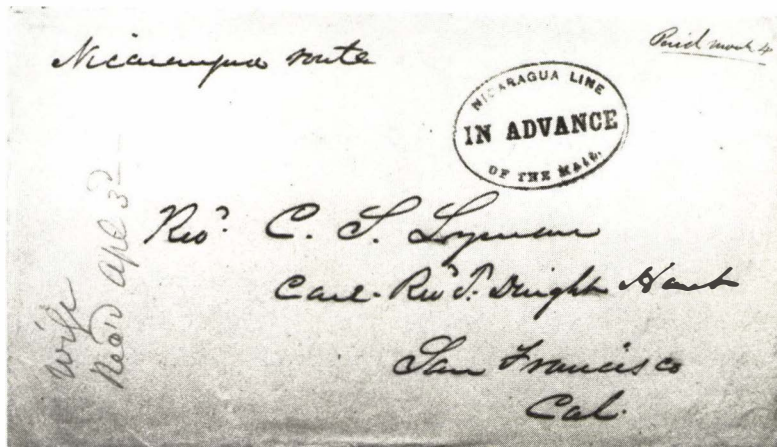 Nicaragua route
Paid
NICARAGUA LINE
IN ADVANCE
OF THE MAIL.
Rev.d C. S. Lyman
Care Rev J. Dwight Hunt
San Francisco
Cal.
Wife
Rec'd Apl 3d